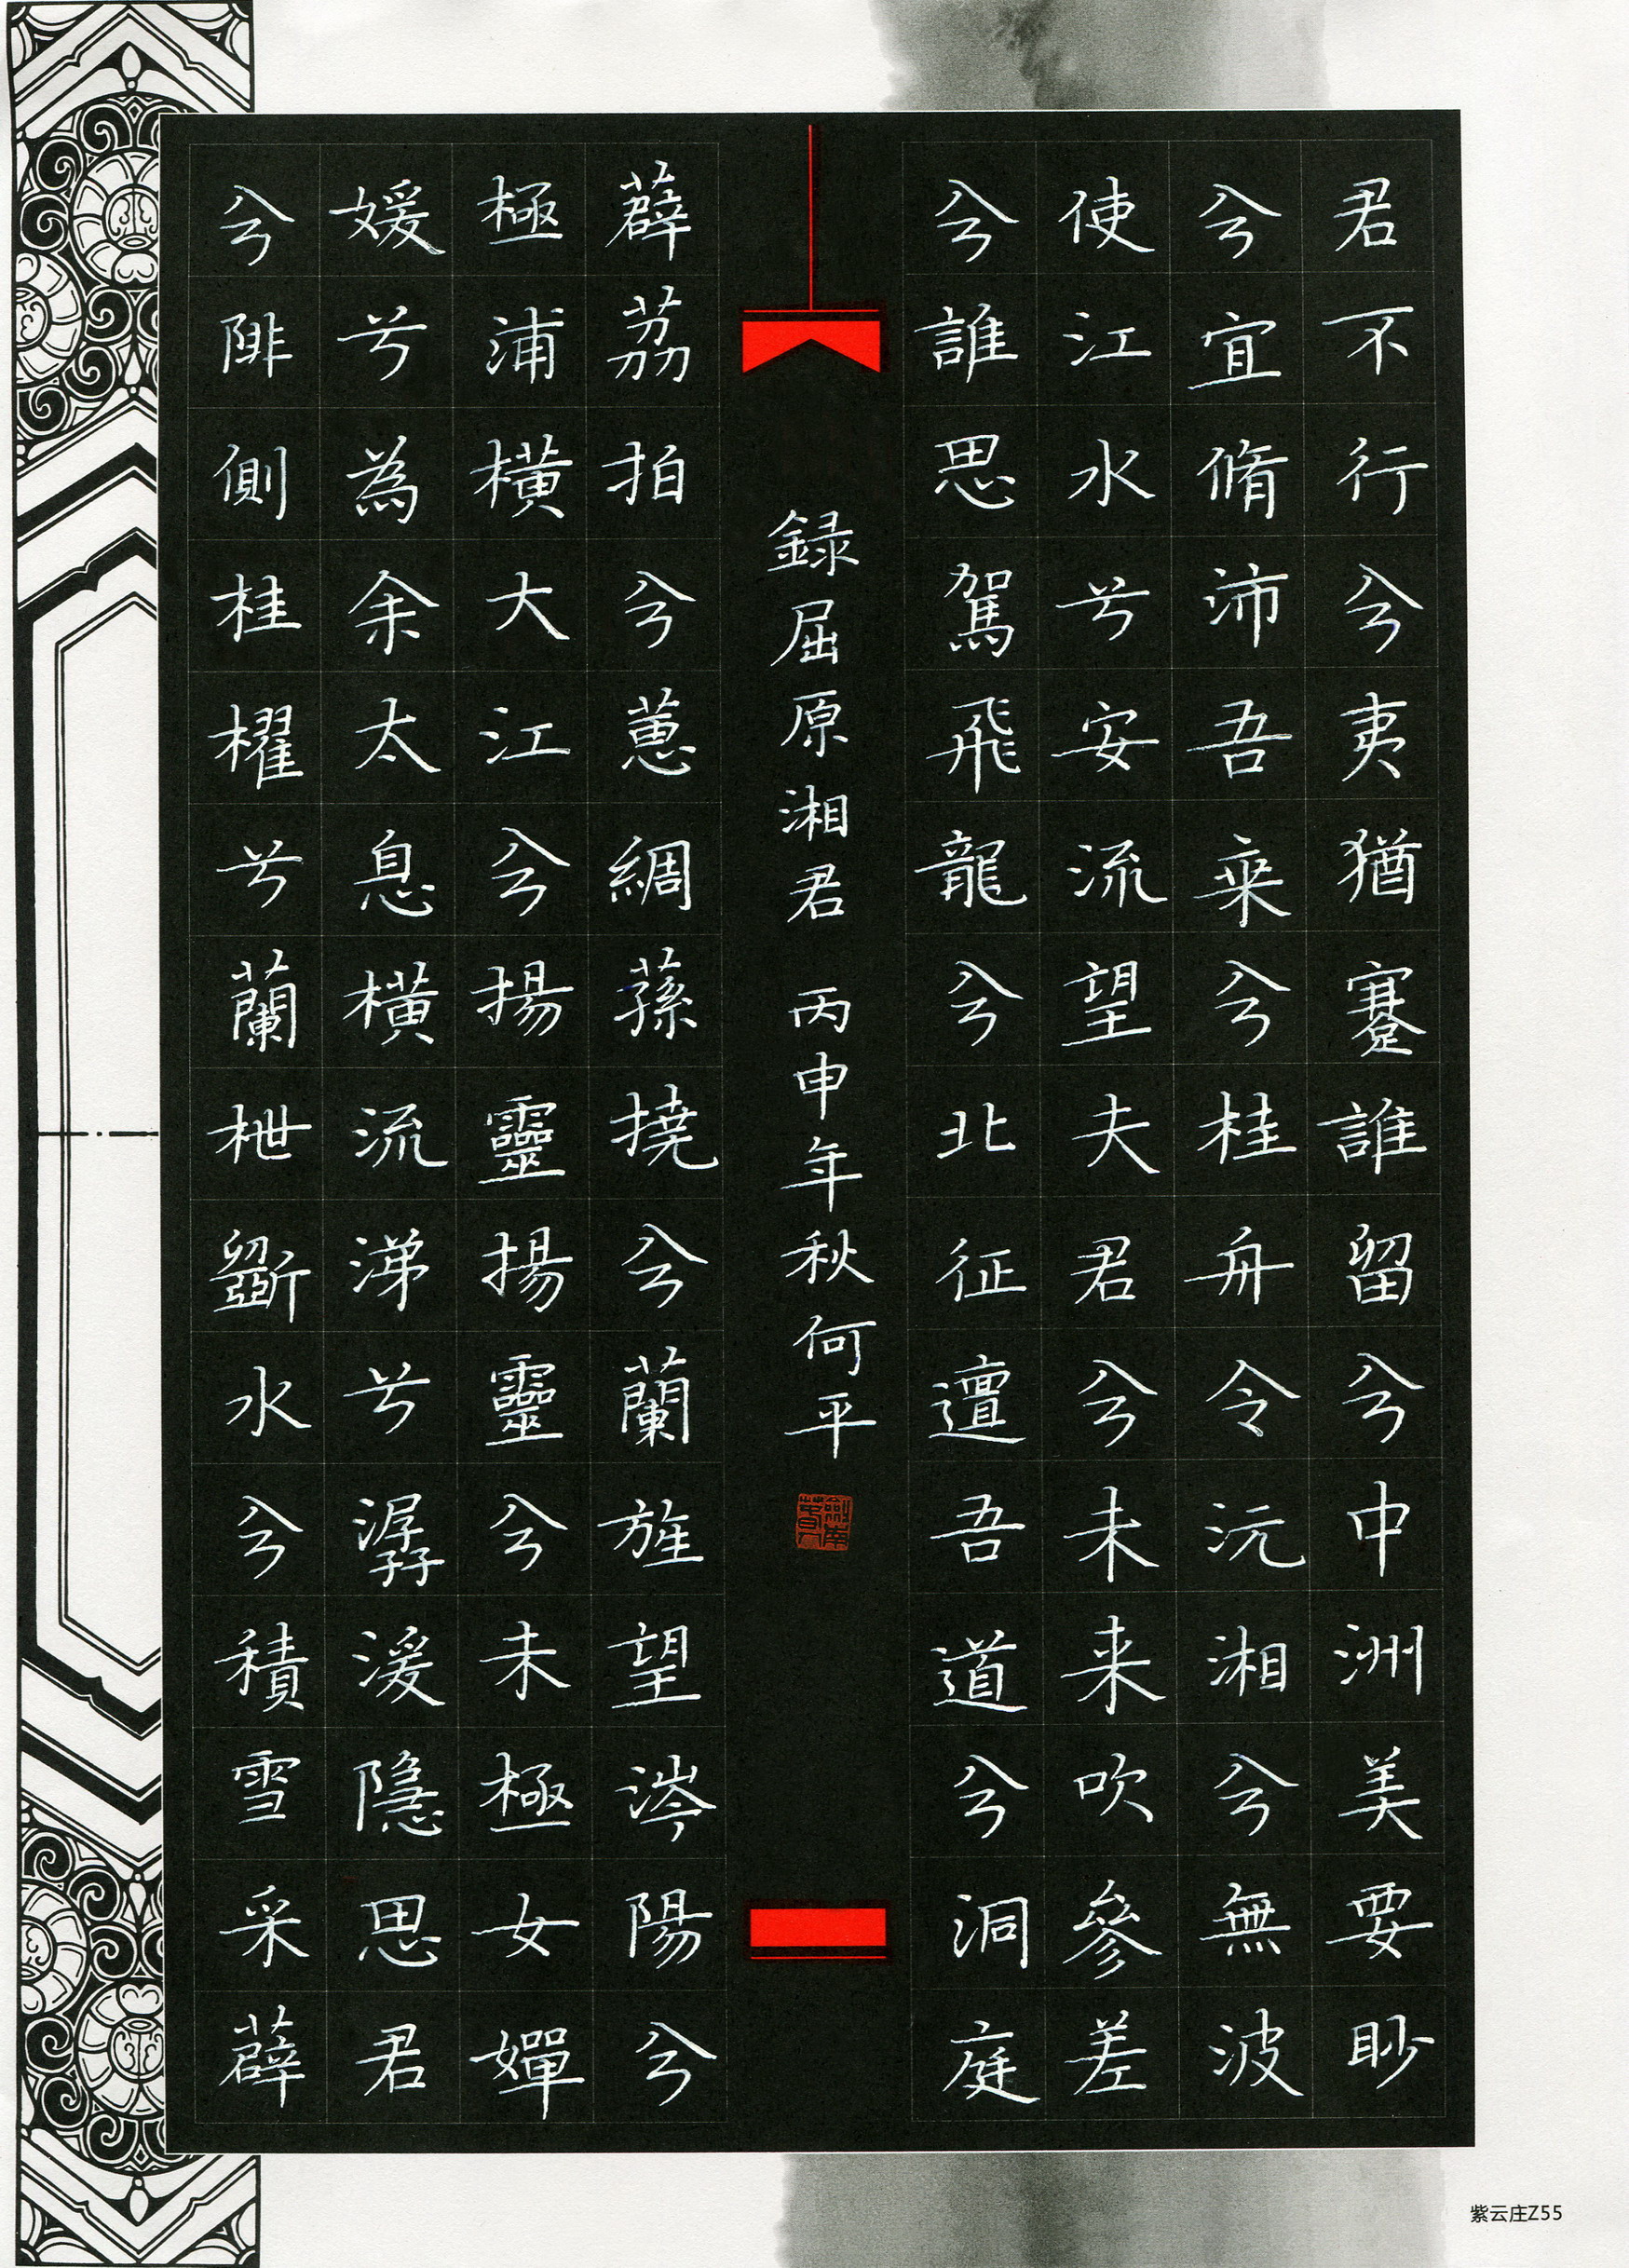 君不行兮夷猶蹇誰留兮中洲美要眇
兮宜脩沛吾乗兮桂舟令沅湘兮無波
使江水兮安流望夫君兮未来吹參差
兮誰思駕飛龍兮北征邅吾道兮洞庭
録屈原湘君 丙申年秋何平
薜荔拍兮蕙綢蓀撓兮蘭旌望涔陽兮
極浦橫大江兮揚靈揚靈兮未極女嬋
媛兮為余太息橫流涕兮潺湲隱思君
兮陫側桂櫂兮蘭枻斲水兮積雪采薜
紫云庄Z55